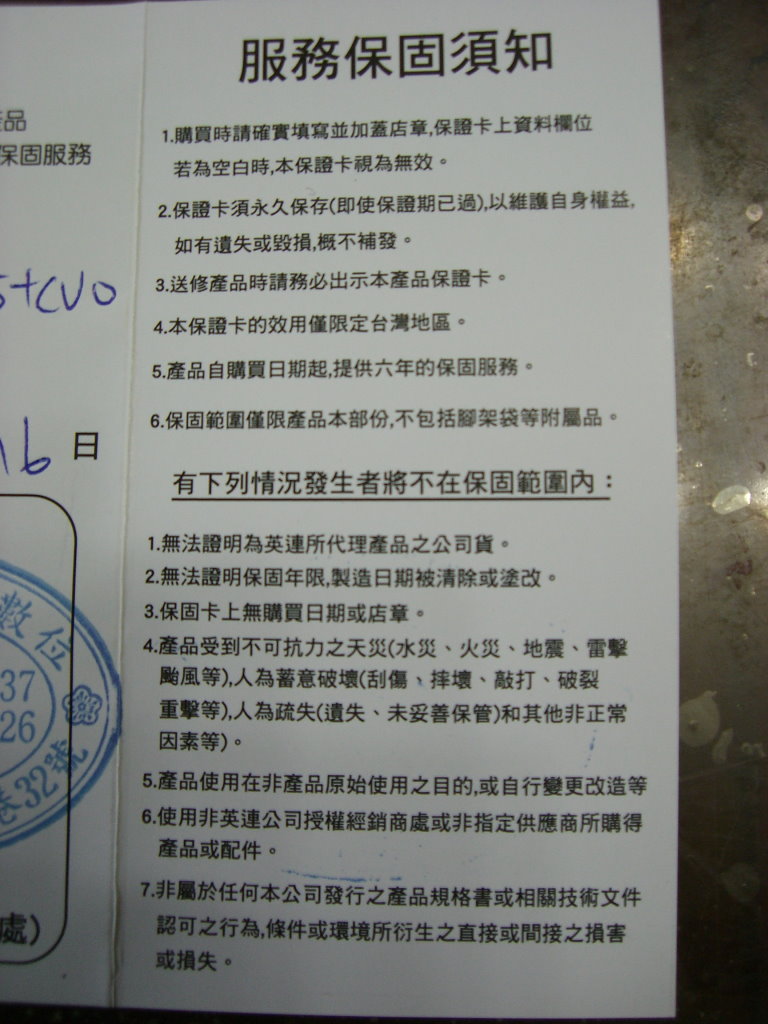 服務保固須知
1.購買時請確實填寫並加蓋店章,保證卡上資料欄位
若為空白時,本保證卡視為無效。
2.保證卡須永久保存(即使保證期已過),以維護自身權益,
如有遺失或毀損,概不補發。
3.送修產品時請務必出示本產品保證卡。
4.本保證卡的效用僅限定台灣地區。
5.產品自購買日期起,提供六年的保固服務。
6.保固範圍僅限產品本部份,不包括腳架袋等附屬品。
有下列情況發生者將不在保固範圍內：
1.無法證明為英連所代理產品之公司貨。
2.無法證明保固年限,製造日期被清除或塗改。
3.保固卡上無購買日期或店章。
4.產品受到不可抗力之天災(水災、火災、地震、雷擊
颱風等),人為蓄意破壞(刮傷、摔壞、敲打、破裂
重擊等),人為疏失(遺失、未妥善保管)和其他非正常
因素等)。
5.產品使用在非產品原始使用之目的,或自行變更改造等
6.使用非英連公司授權經銷商處或非指定供應商所購得
產品或配件。
7.非屬於任何本公司發行之產品規格書或相關技術文件
認可之行為,條件或環境所衍生之直接或間接之損害
或損失。
品
保固服務
16 日
數位
37
26
巷32號
處)